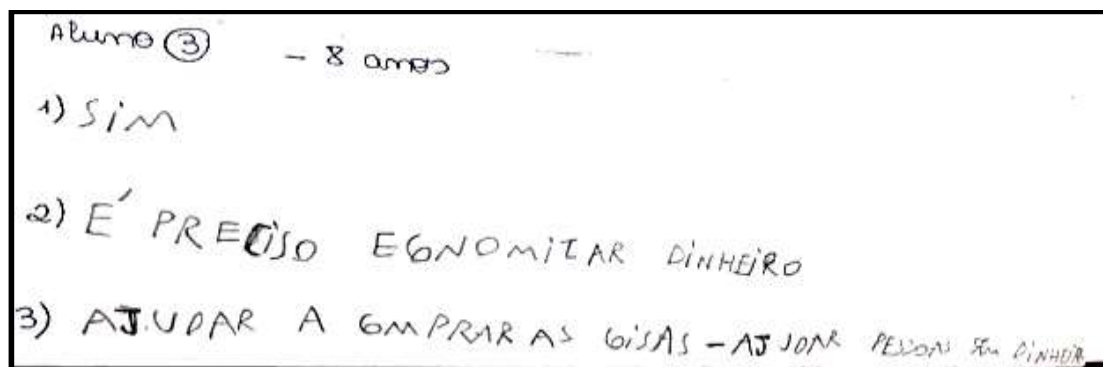 Aluno 3 - 8 anos
1) SIM
2) É PRECISO ECONOMIZAR DINHEIRO
3) AJUDAR A COMPRAR AS COISAS - AJUDAR PESSOAS SEM DINHEIR